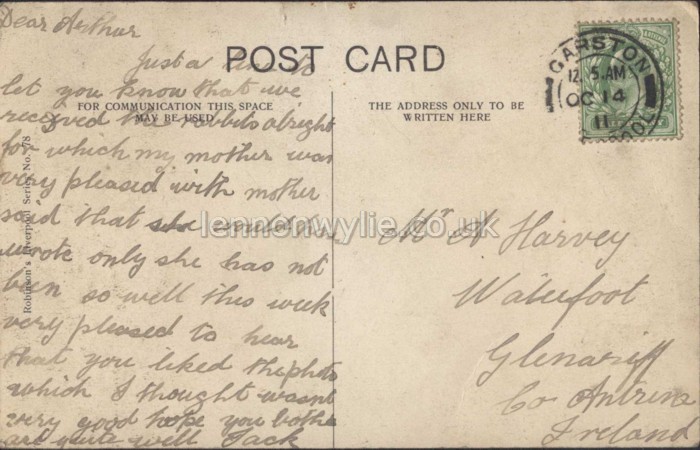 Dear Arthur
Just a line to
let you know that we
received the rabbits alright
for which my mother was
very pleased with mother
said that she would have
wrote only she has not
been so well this week
very pleased to hear
that you liked the photo
which I thought wasnt
very good hope you both
are quite well Jack
POST CARD
FOR COMMUNICATION THIS SPACE
MAY BE USED
THE ADDRESS ONLY TO BE
WRITTEN HERE
Robinson's Liverpool Series, No. 78
GARSTON
12.5.AM
OC 14
11
POOL
Mr A Harvey
Waterfoot
Glenariff
Co Antrim
Ireland
lennonwylie.co.uk